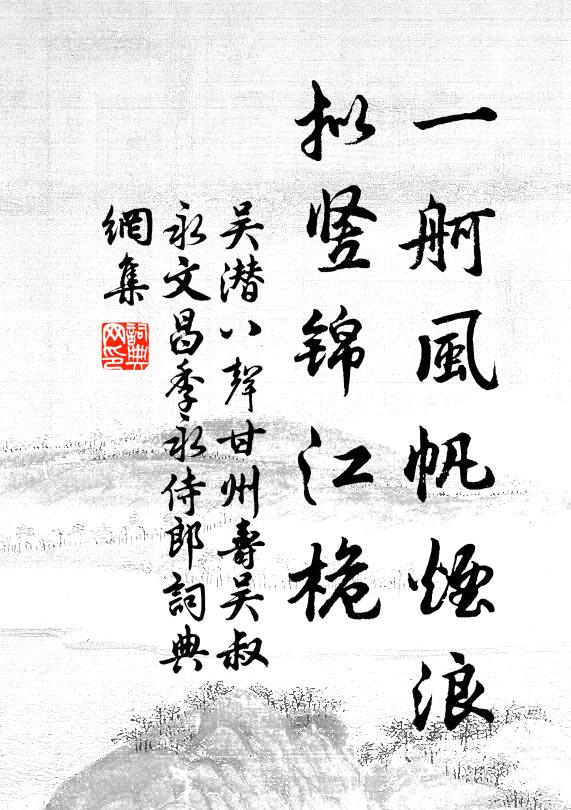 一舸風帆煙浪
拟竖锦江桅
吴潜八声甘州寿吴叔
永文昌季永侍郎詞典
網集
詞典網印